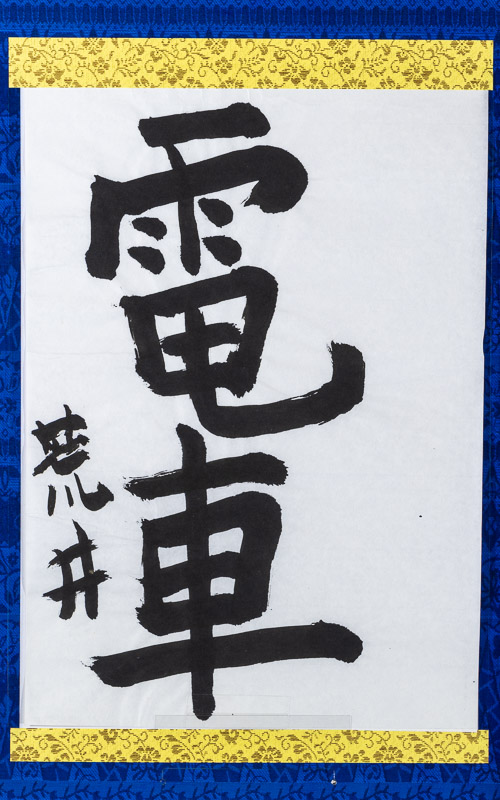 電車
荒井